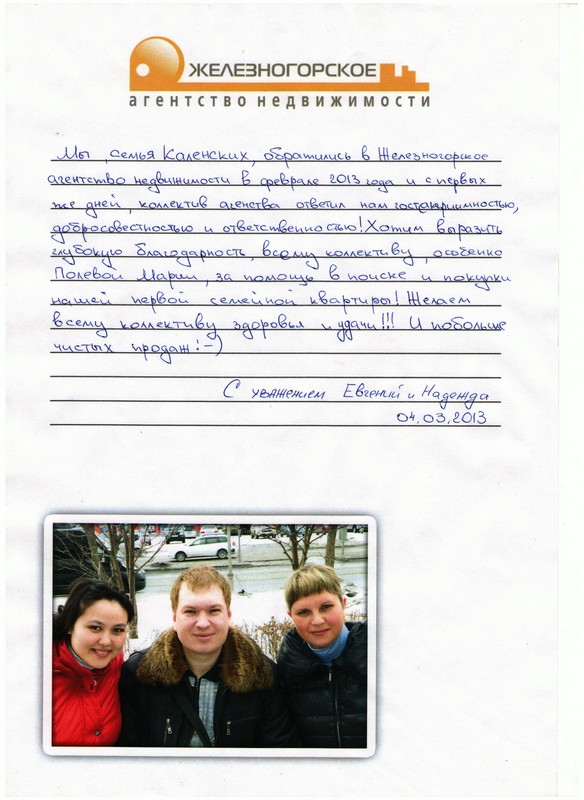 ЖЕЛЕЗНОГОРСКОЕ
агентство недвижимости
Мы, семья Каленских, обратились в Железногорское
агентство недвижимости в феврале 2013 года и с первых
же дней, коллектив агенства ответил нам гостеприимностью,
добросовестностью и ответственностью! Хотим выразить
глубокую благодарность всему коллективу, особенно
Полевой Марии, за помощь в поиске и покупки
нашей первой семейной квартиры! Желаем
всему коллективу здоровья и удачи!!! И побольше
чистых продаж! :-)
С уважением Евгений и Надежда
04.03.2013